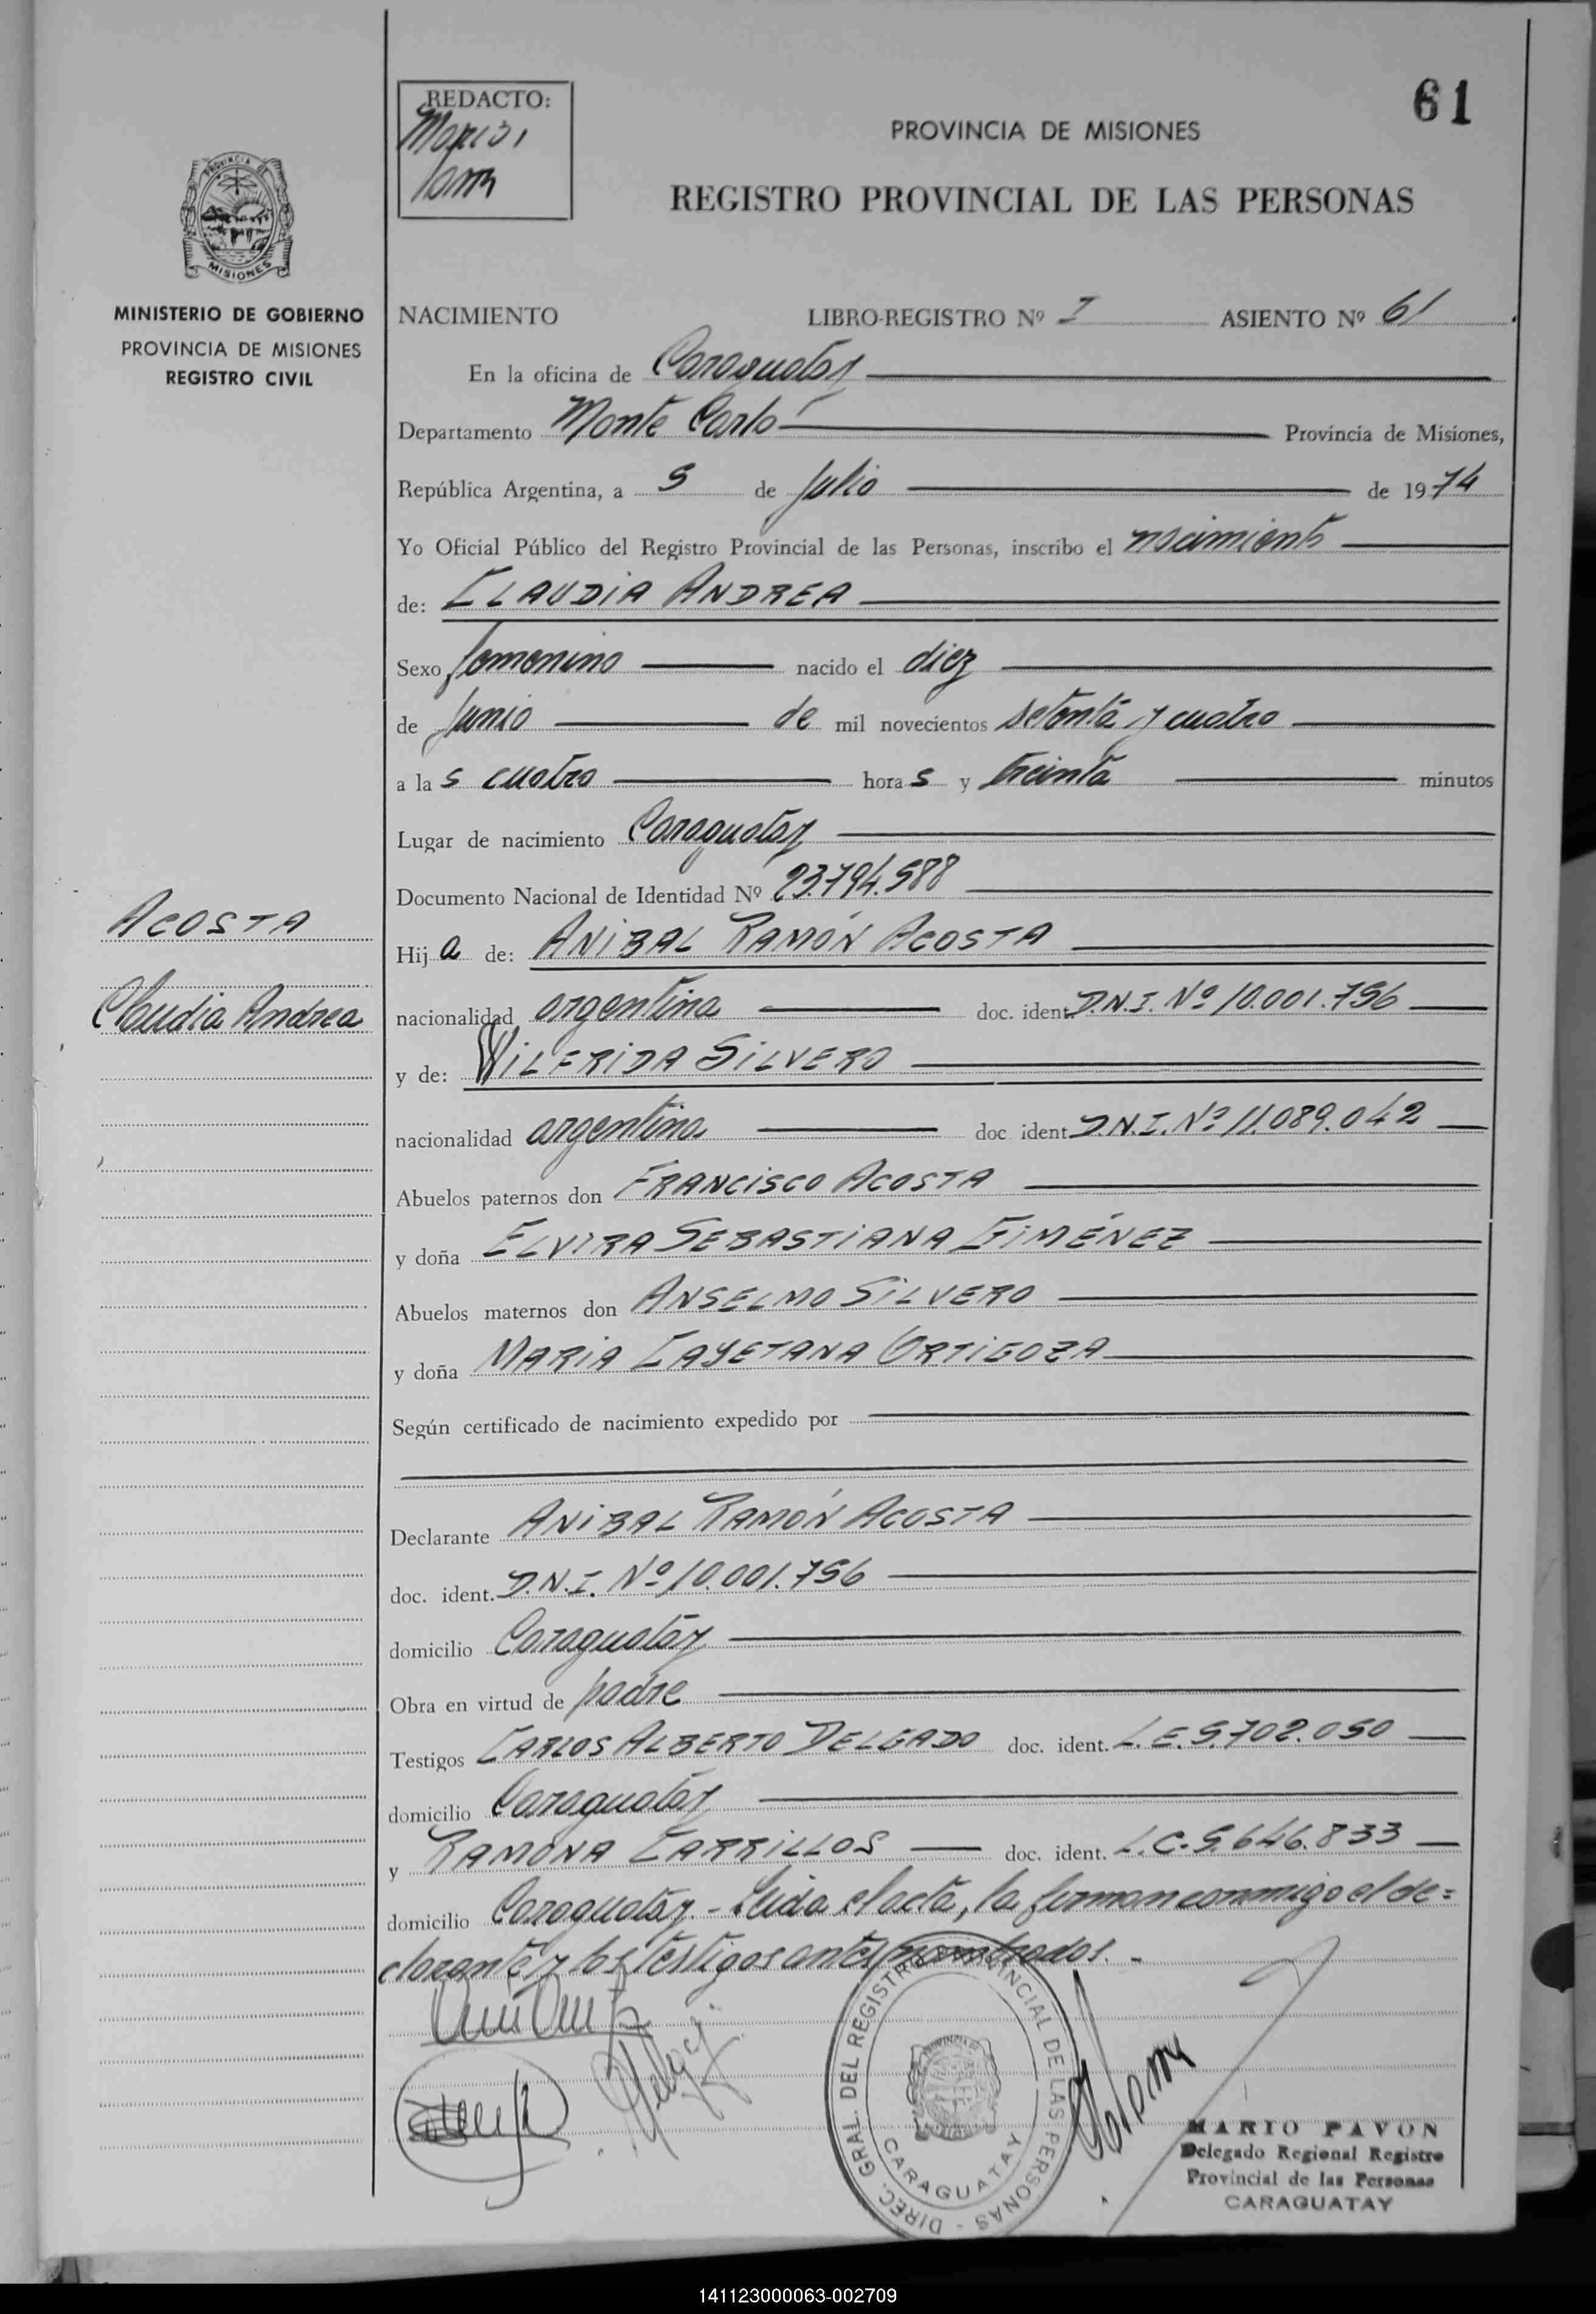 REDACTO:
61
PROVINCIA DE MISIONES
REGISTRO PROVINCIAL DE LAS PERSONAS
PROVINCIA DE
MISIONES
MINISTERIO DE GOBIERNO
PROVINCIA DE MISIONES
REGISTRO CIVIL
NACIMIENTO LIBRO-REGISTRO Nº I ASIENTO Nº 61
En la oficina de Caraguatay
Departamento Monte Carlo Provincia de Misiones,
República Argentina, a 5 de Julio de 1974
Yo Oficial Público del Registro Provincial de las Personas, inscribo el nacimiento
de: CLAUDIA ANDREA
Sexo femenino nacido el diez
de Junio de mil novecientos setenta y cuatro
a las cuatro horas y treinta minutos
Lugar de nacimiento Caraguatay
Documento Nacional de Identidad Nº 23.794.588
ACOSTA
Claudia Andrea
Hija de: ANIBAL RAMÓN ACOSTA
nacionalidad argentina doc. ident. D.N.I. Nº 10.001.756
y de: WILFRIDA SILVERO
nacionalidad argentina doc ident D.N.I. Nº 11.089.042
Abuelos paternos don FRANCISCO ACOSTA
y doña ELVIRA SEBASTIANA GIMÉNEZ
Abuelos maternos don ANSELMO SILVERO
y doña MARIA CAYETANA ORTIGOZA
Según certificado de nacimiento expedido por
Declarante ANIBAL RAMÓN ACOSTA
doc. ident. D.N.I. Nº 10.001.756
domicilio Caraguatay
Obra en virtud de padre
Testigos CARLOS ALBERTO DELGADO doc. ident. L.E. 5.702.050
domicilio Caraguatay
y RAMONA CARRILLOS doc. ident. L.C. 5.646.833
domicilio Caraguatay.- Leida el acta, la firman conmigo el de=
clarante y los testigos antes nombrados.-
DIREC. GRAL. DEL REGISTRO PROVINCIAL DE LAS PERSONAS -
CARAGUATAY
MARIO PAVON
Delegado Regional Registro
Provincial de las Personas
CARAGUATAY
141123000063-002709